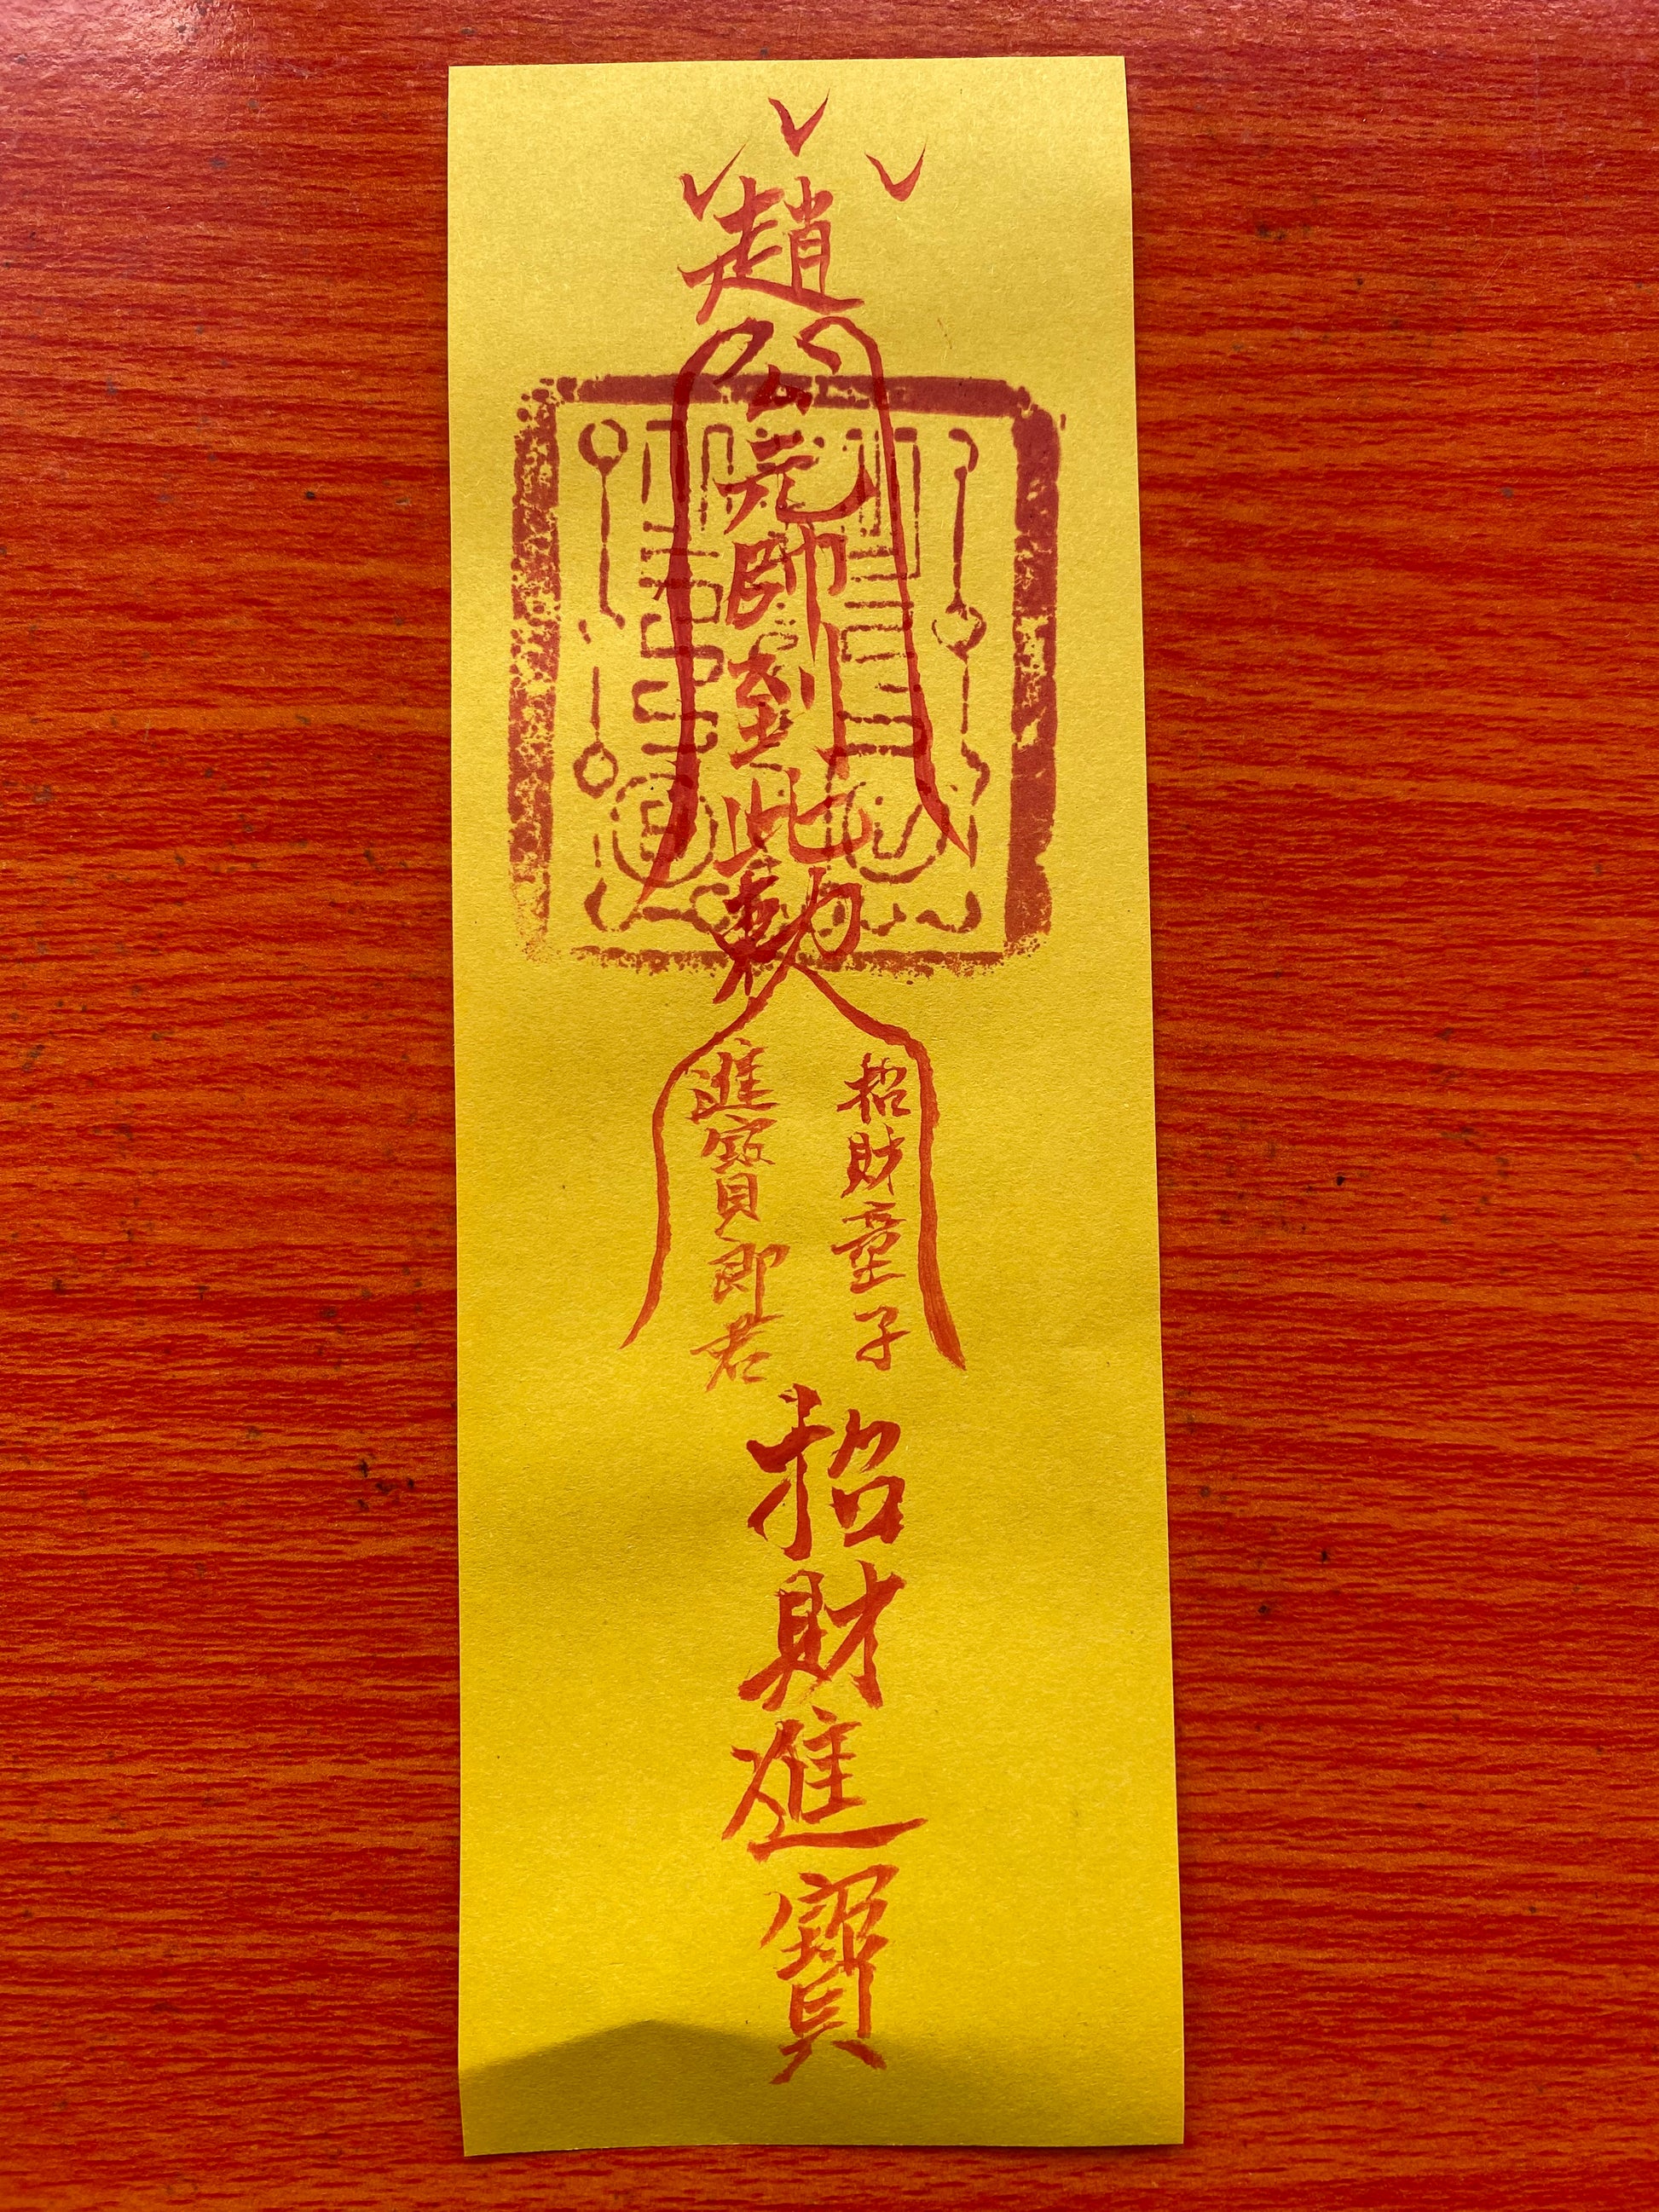 趙公元帥到此勅
招財童子
進寶郎君
招財進寶